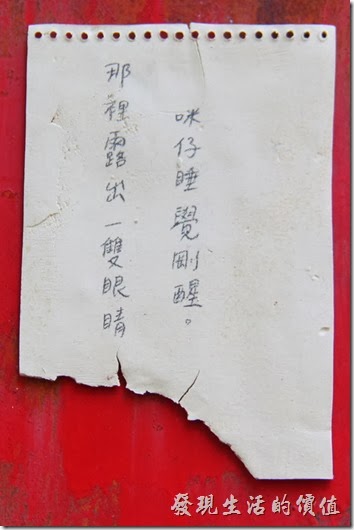 咪仔睡覺剛醒。
那裡露出一雙眼睛
發現生活的價值